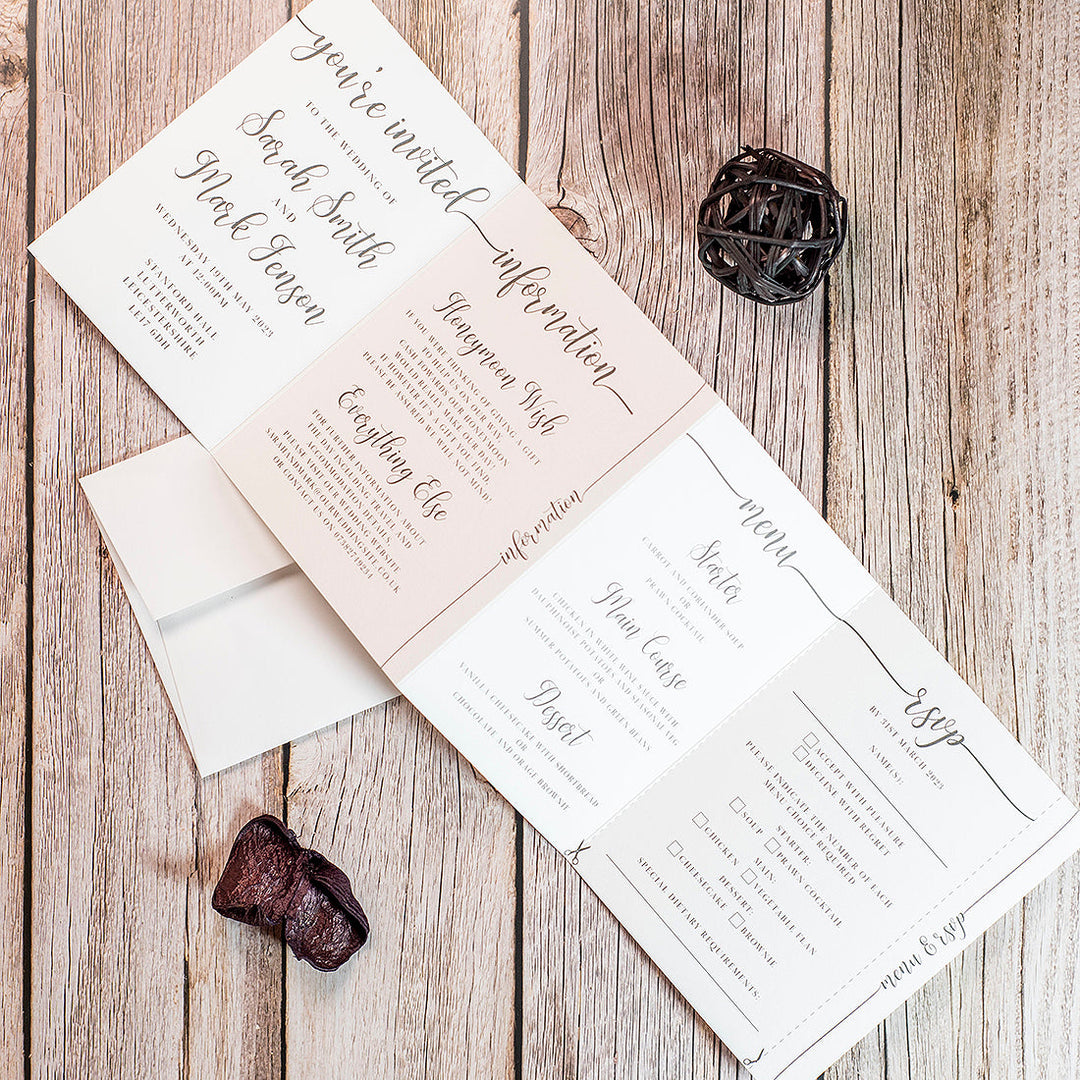 you're invited
TO THE WEDDING OF
Sarah Smith
AND
Mark Jenson
WEDNESDAY 19TH MAY 2023
AT 12:00PM
STANFORD HALL
LUTTERWORTH
LEICESTERSHIRE
LE17 6DH
information
Honeymoon Wish
IF YOU WERE THINKING OF GIVING A GIFT
TO HELP US ON OUR WAY,
CASH TOWARDS OUR HONEYMOON
WOULD REALLY MAKE OUR DAY!
IF HOWEVER A GIFT YOU FIND,
PLEASE BE ASSURED WE WILL NOT MIND!
Everything Else
FOR FURTHER INFORMATION ABOUT
THE DAY INCLUDING TRAVEL AND
ACCOMMODATION DETAILS
PLEASE VISIT OUR WEDDING WEBSITE
OR CONTACT US ON
information
menu
Starter
CARROT AND CORIANDER SOUP
OR
PRAWN COCKTAIL
Main Course
CHICKEN IN WHITE WINE SAUCE WITH
DAUPHINOISE POTATOES AND SEASONAL VEG
OR
SUMMER POTATOES AND GREEN BEANS
Dessert
VANILLA CHEESECAKE WITH SHORTBREAD
OR
CHOCOLATE AND ORAGE BROWNIE
rsvp
BY 31ST MARCH 2023
NAME(S):
ACCEPT WITH PLEASURE
DECLINE WITH REGRET
PLEASE INDICATE THE NUMBER OF EACH
MENU CHOICE REQUIRED
STARTER:
SOUP PRAWN COCKTAIL
MAIN:
CHICKEN VEGETABLE FLAN
DESSERT:
CHEESECAKE BROWNIE
SPECIAL DIETARY REQUIREMENTS:
menu & rsvp